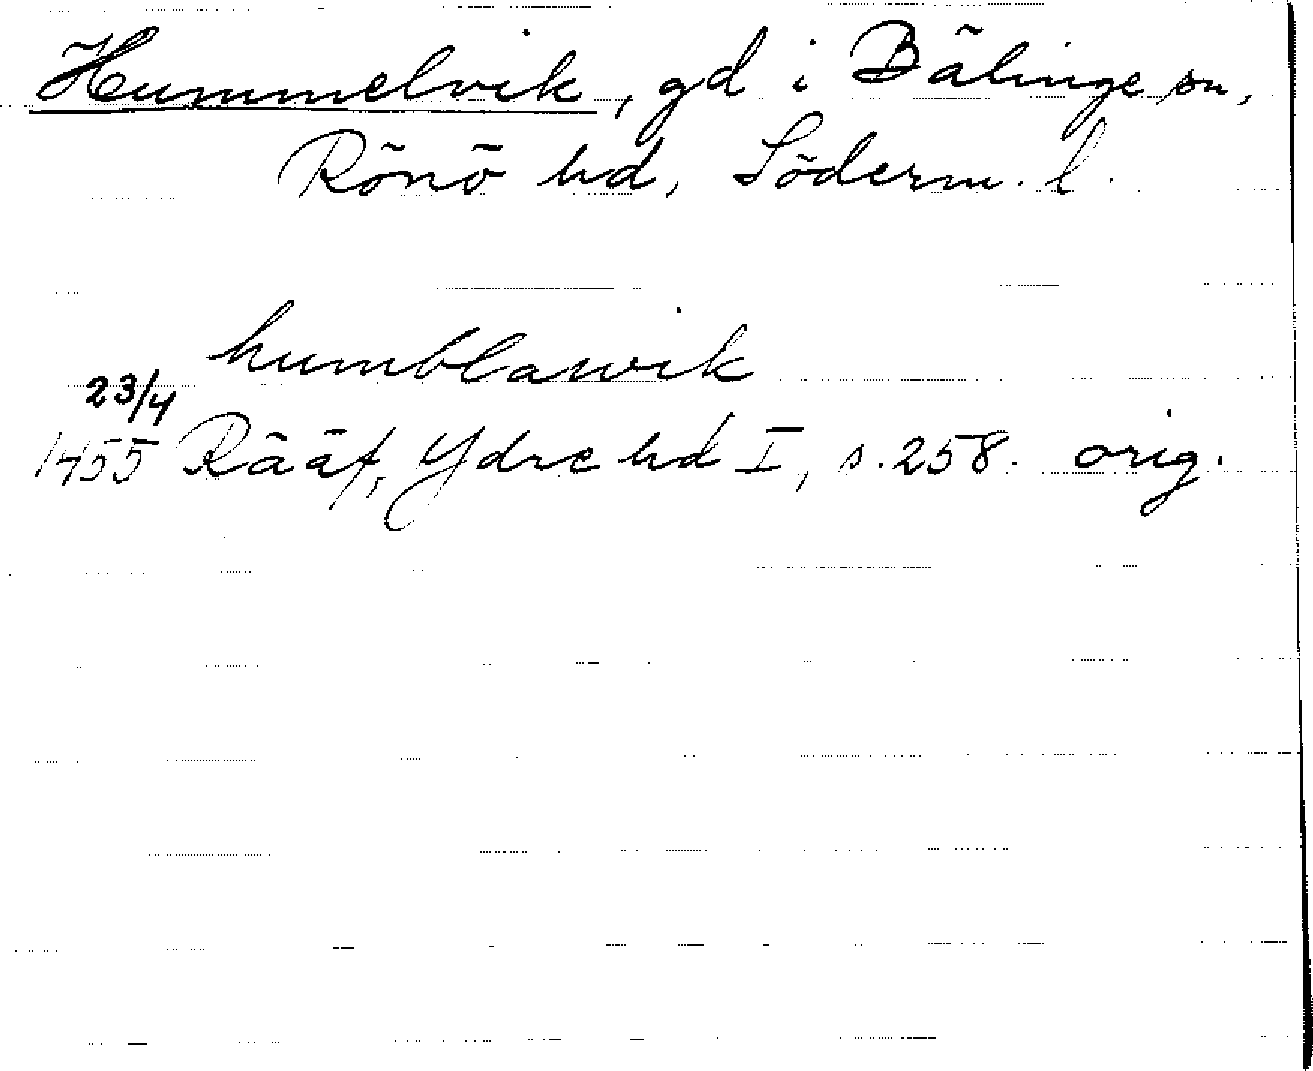 Hummelvik, gd i Bälinge sn,
Rönö hd, Söderm. l.
humblawik
23/4
1455 Rääf, Ydre hd I, s. 258. orig.